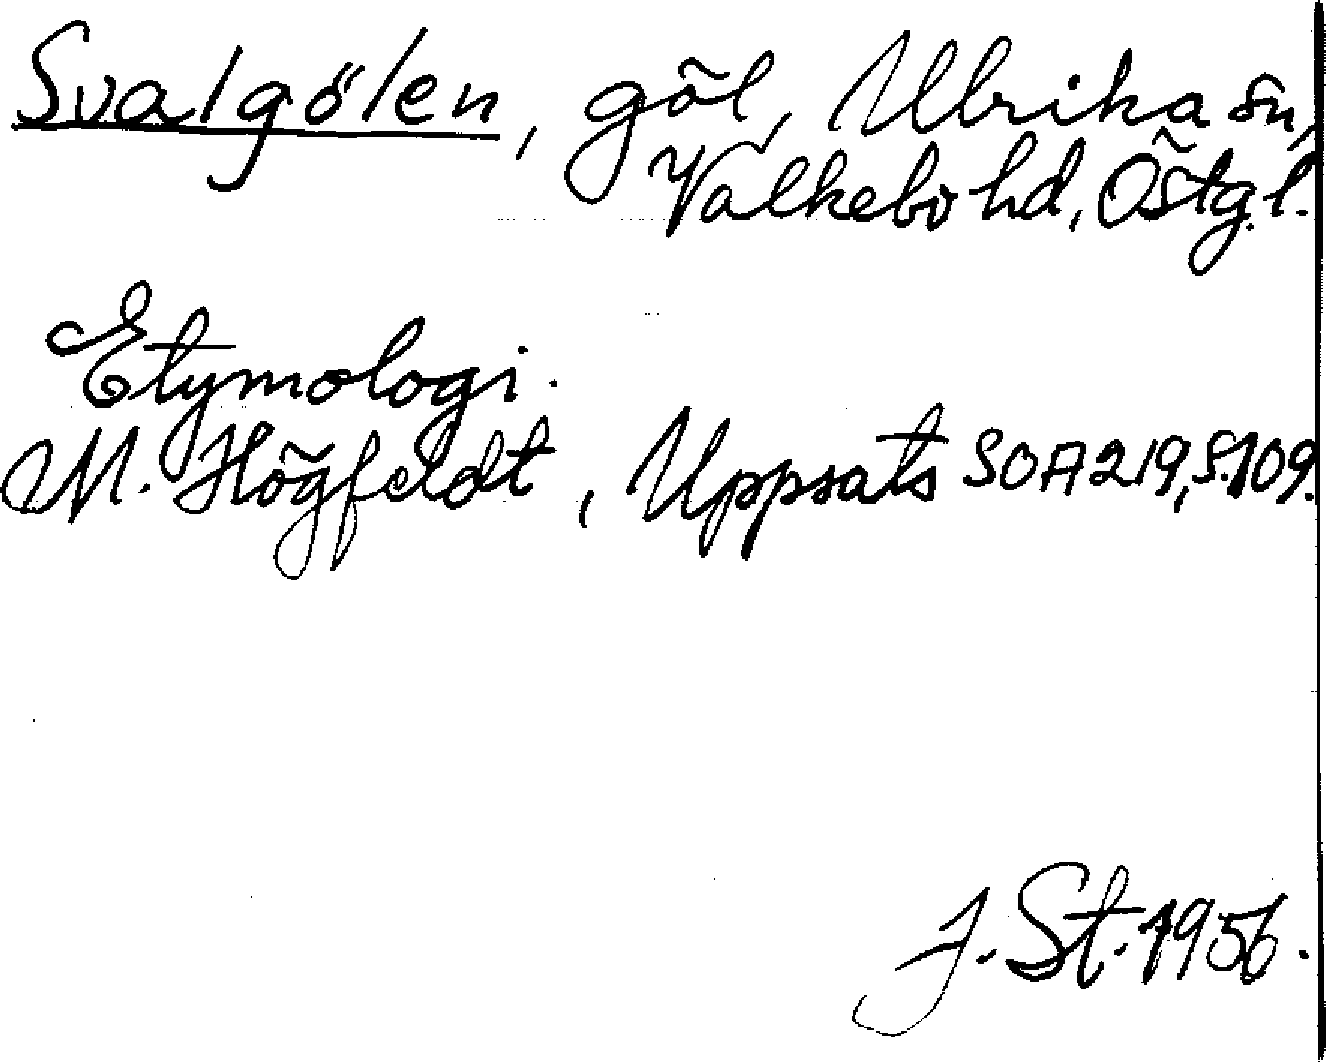 Svalgölen, göl, Ulrika sn,
Valkebo hd, Östg.l.
Etymologi.
M. Högfeldt, Uppsats SOA 219, s. 109.
J. St. 1956.